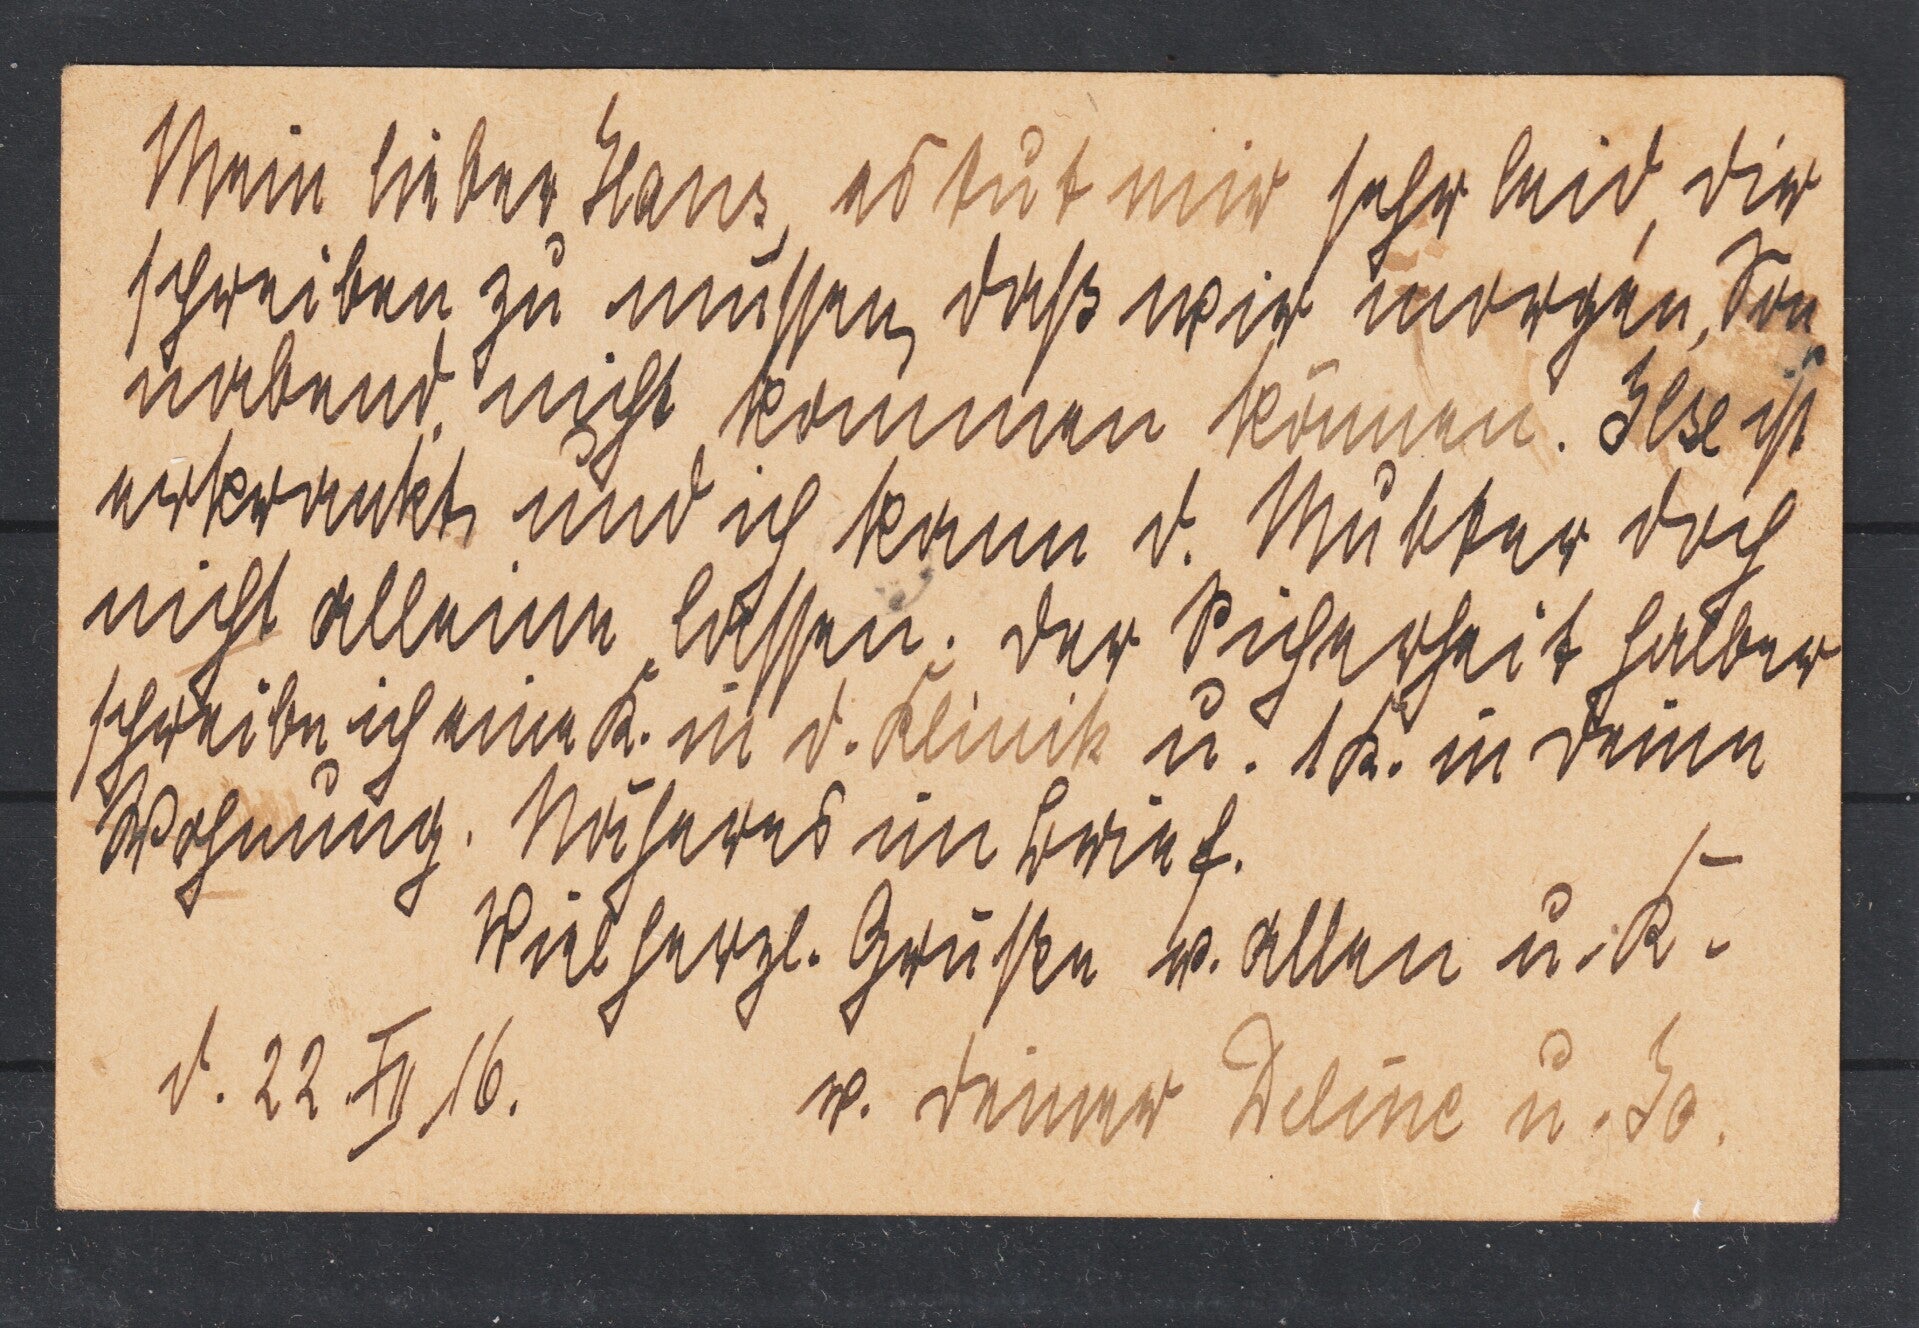 Mein lieber Hans, es tut mir sehr leid, dir
schreiben zu müssen, daß wir morgen, Son
nabend, nicht kommen können. Ilse ist
erkrankt, und ich kann d. Mutter doch
nicht alleine lassen. Der Sicherheit halber
schreibe ich eine K. in d. Klinik u. 1 K. in deine
Wohnung. Näheres im Brief.
Viel herzl. Grüße v. allen u. K.
d. 22. XII 16. v. deiner Deline u. Jo.